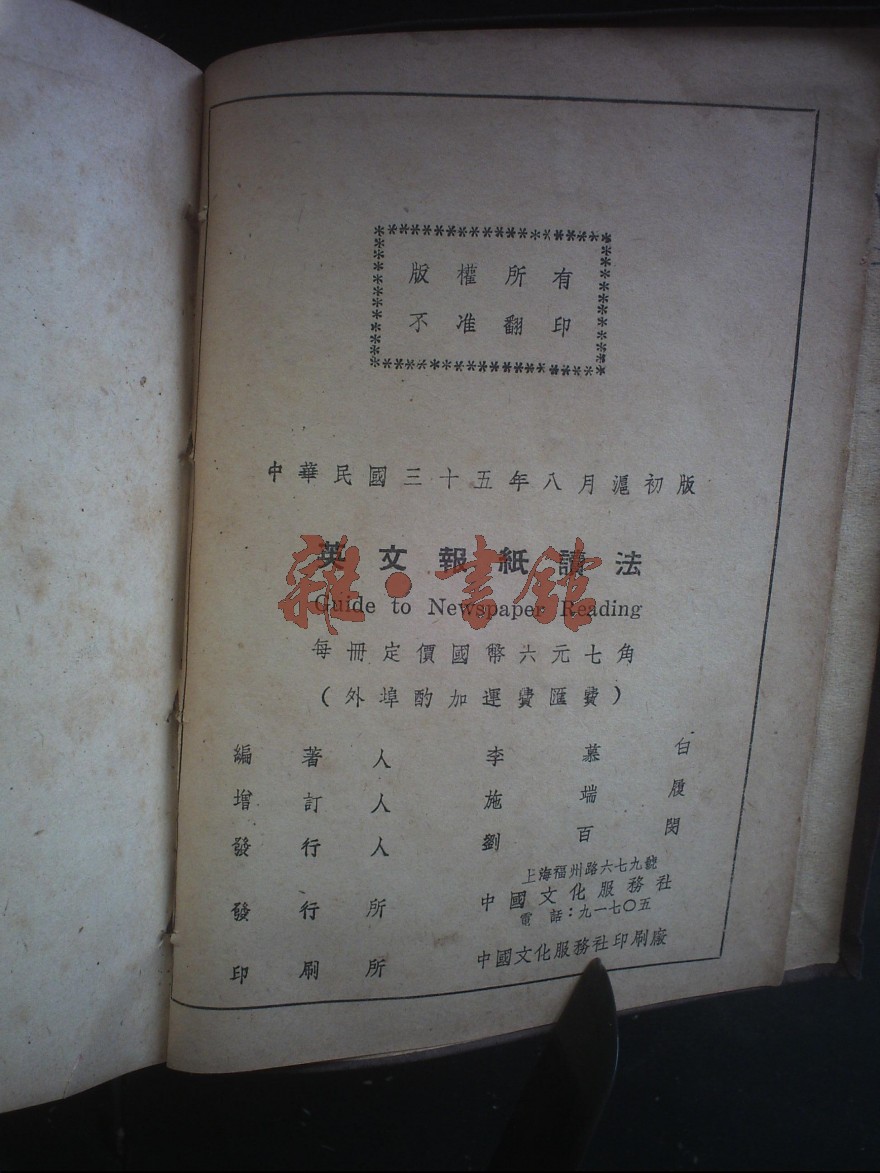 版權所有
不准翻印
中華民國三十五年八月滬初版
英文報紙讀法
Guide to Newspaper Reading
雜·書館
每冊定價國幣六元七角
(外埠酌加運費匯費)
編著人 李慕白
增訂人 施端履
發行人 劉百閔
上海福州路六七九號
發行所 中國文化服務社
電話:九一七〇五
印刷所 中國文化服務社印刷廠